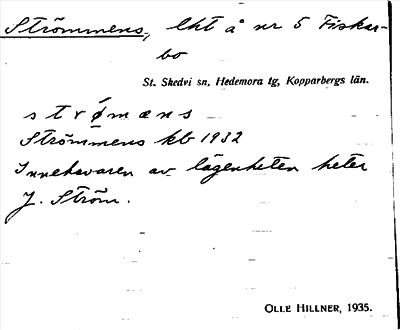 Strömmens, lht å nr 5 Fiskar-
bo
St. Skedvi sn, Hedemora tg, Kopparbergs län.
s t r ǿ m æ n s
Strömmens kb 1932
Innehavaren av lägenheten heter
J. Ström.
OLLE HILLNER, 1935.